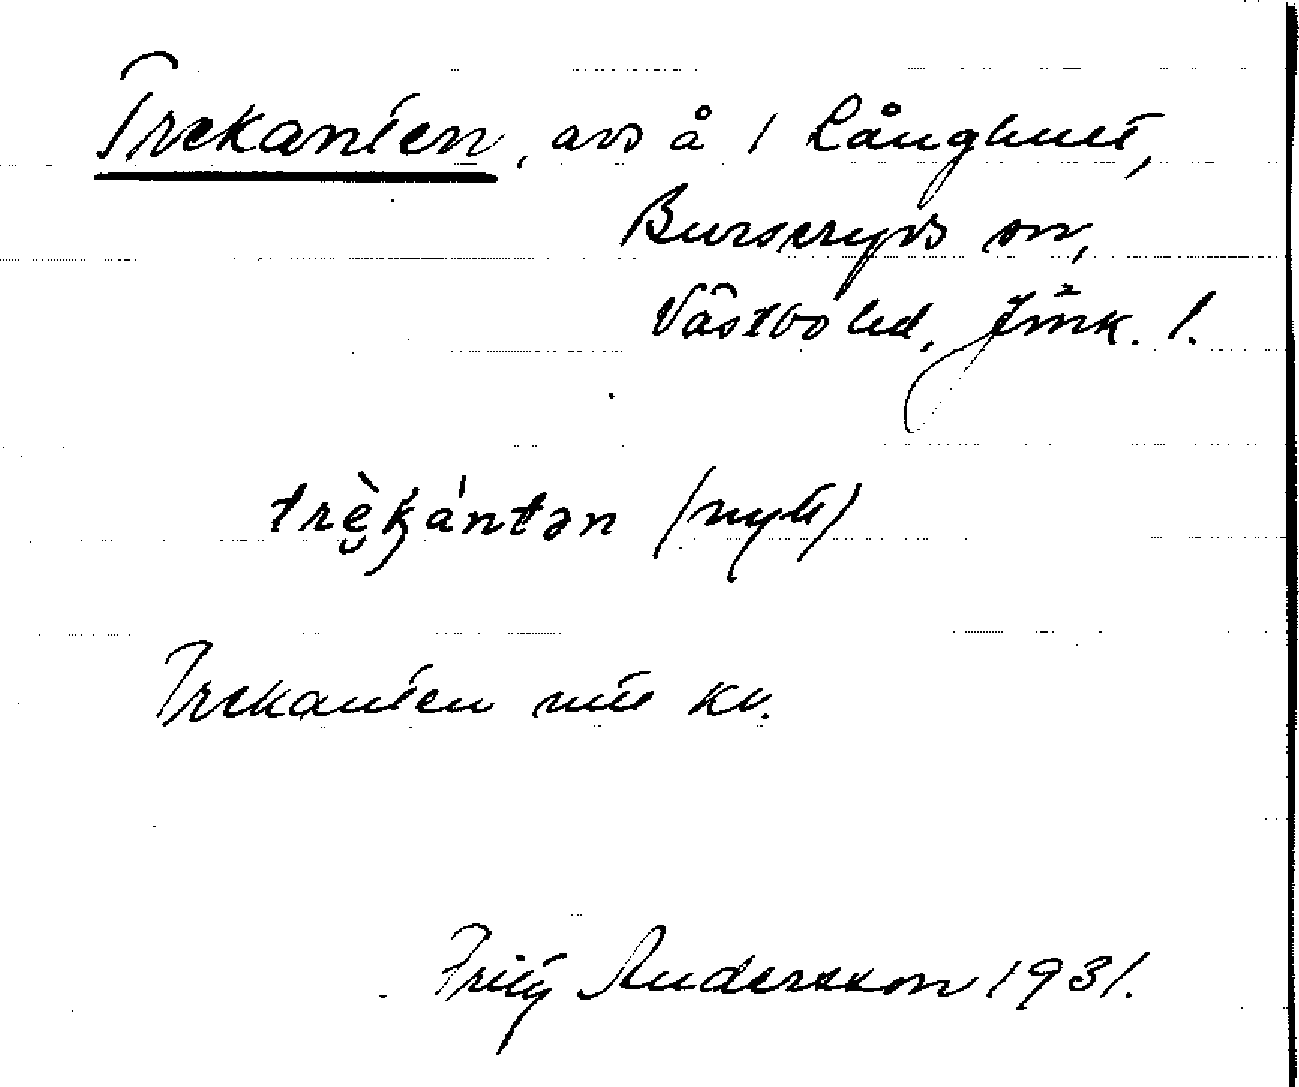 Trekanten, avs å 1 Långhult,
Burseryds sn,
Västbo hd. Jönk. l.
trèkántən (nytt)
Trekanten nu kv.
Frity Andersson 1931.